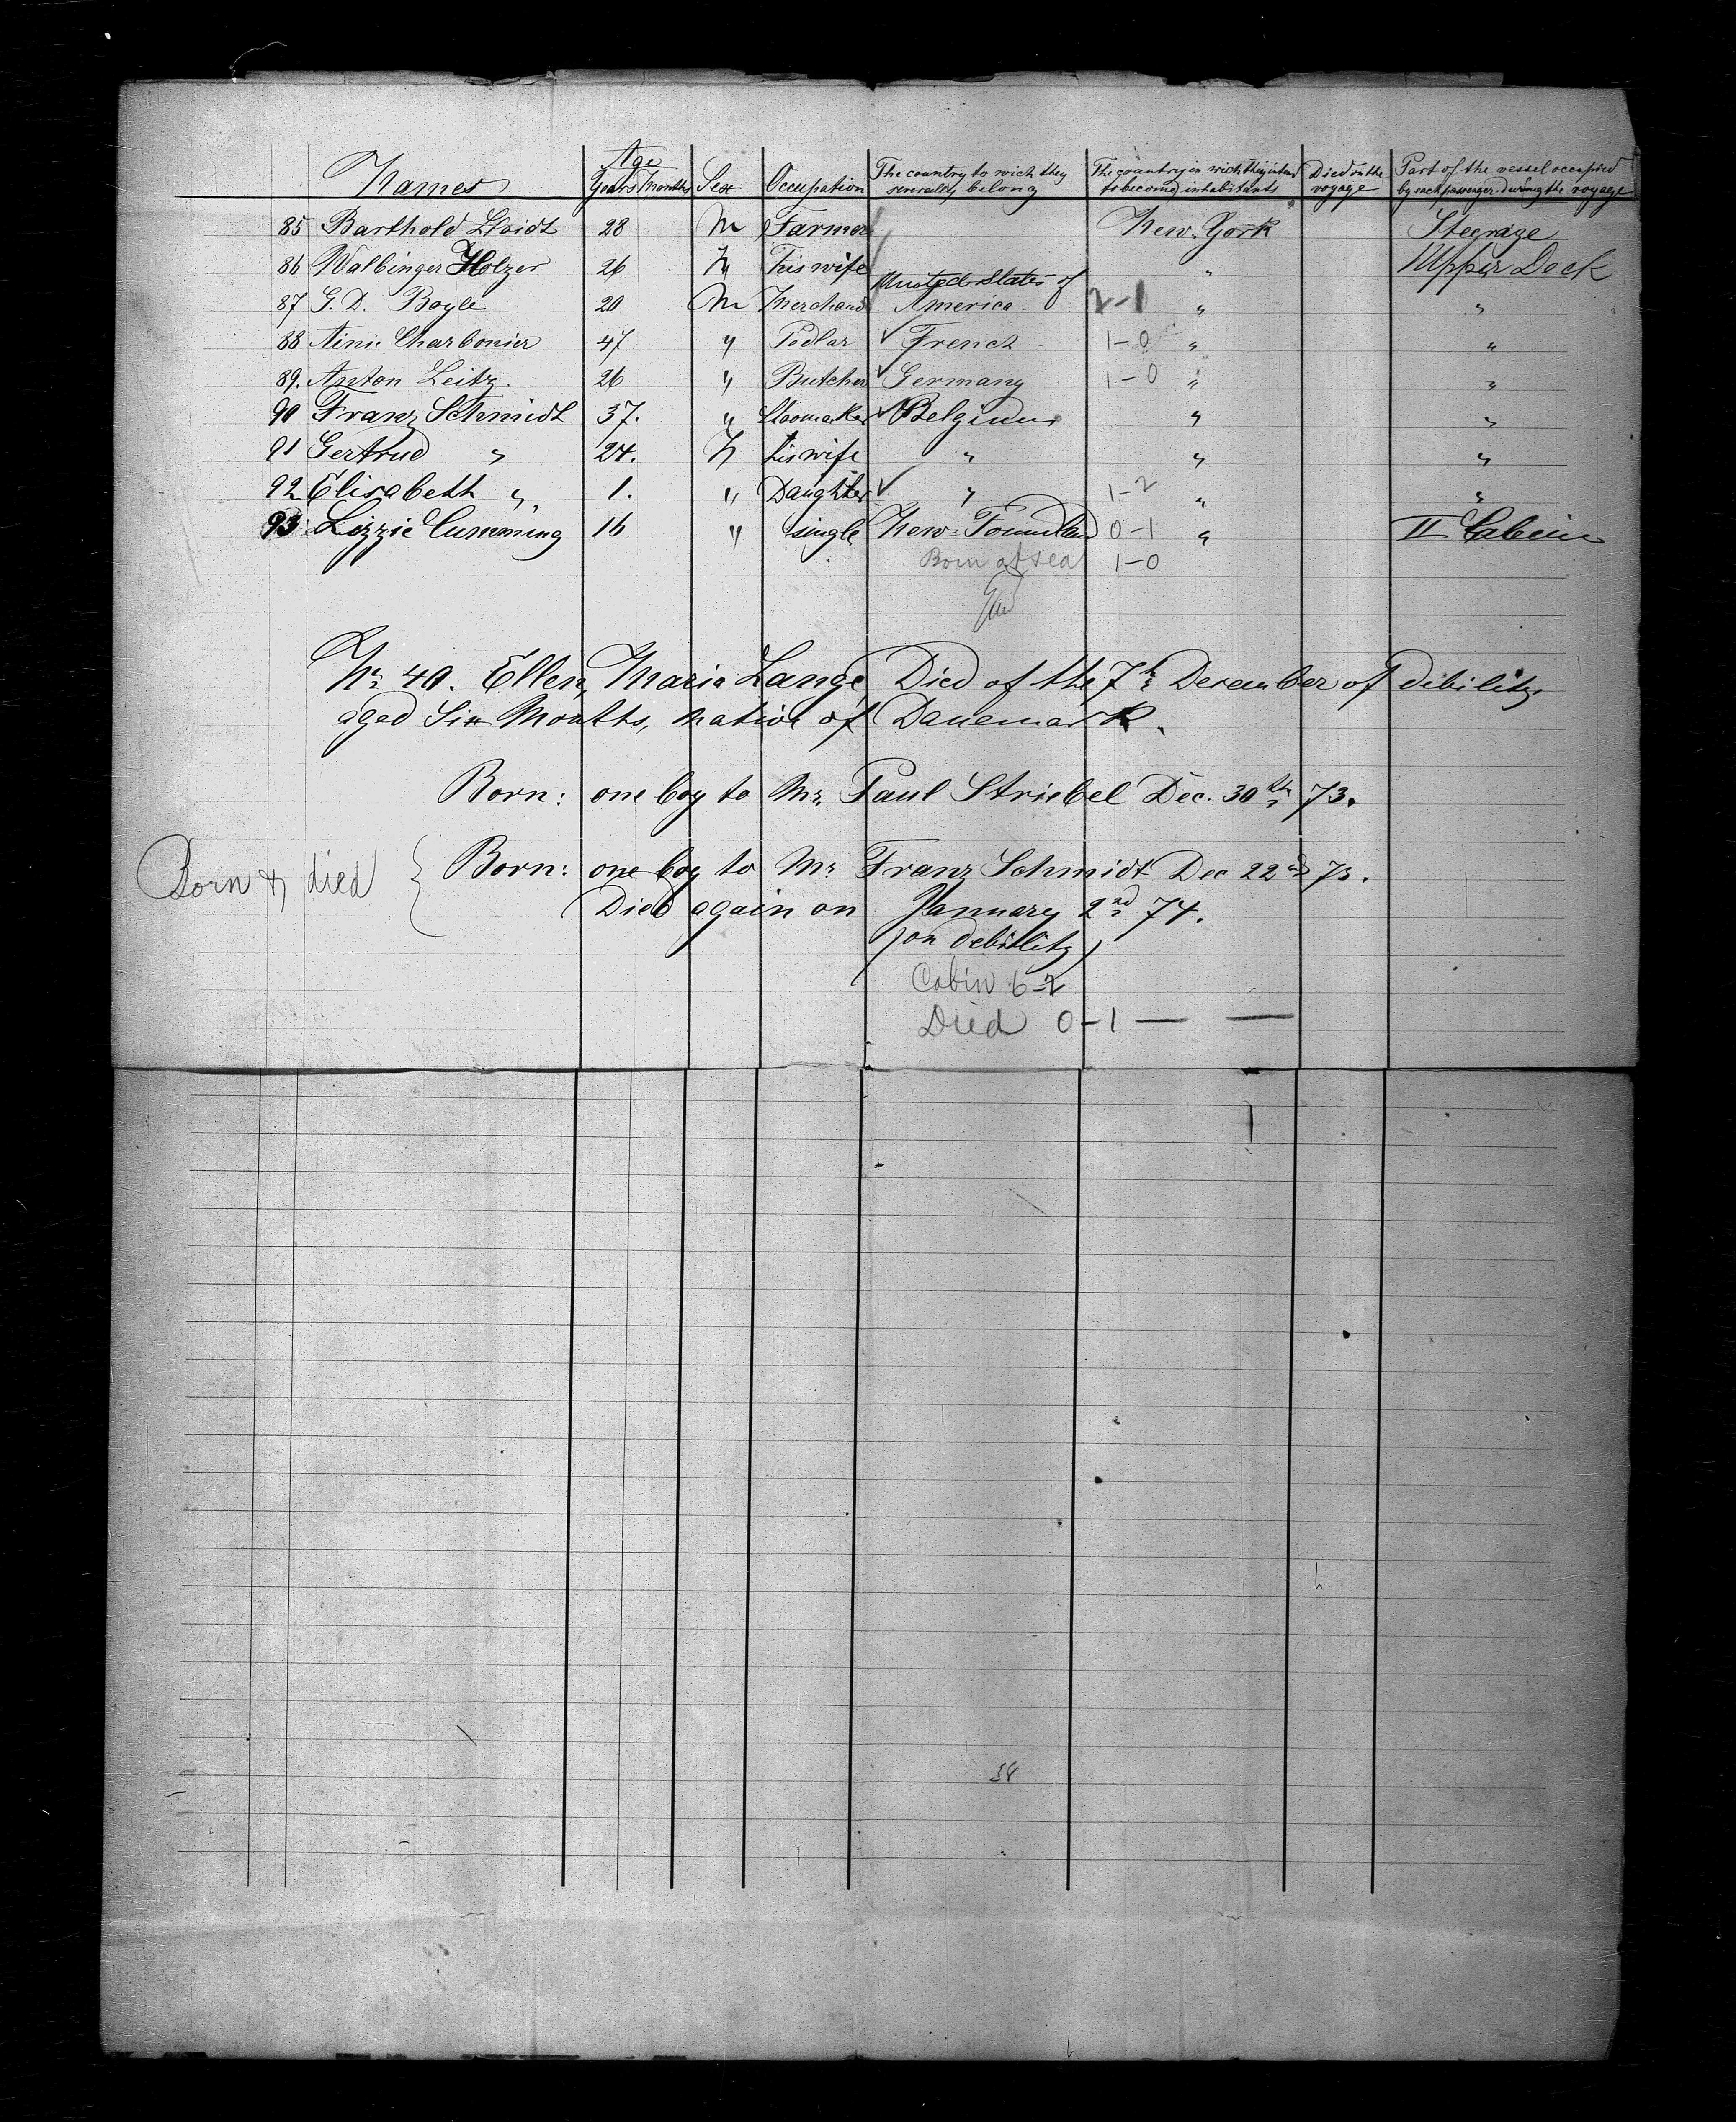 Names Age Years Months Sex Occupation The country to wich they severally belong The country in wich they intend to become inhabitants Died on the voyage Part of the vessel occupied by each passenger during the voyage
85 Barthold 28 M Farmer New-York Steerage
86 Walbinger Holzer 26 his wife " Upper Deck
87 G. D. Bogle 20 M Merchand United States of America 2-1 " "
88 Charbonier 47 " Pedlar ✓ French 1-0 " "
89. Anton Leitz. 26 " Butcher ✓ Germany 1-0 " "
90 Franz Schmidt 37. " ✓ Belgium " "
91 Gertrud " 24. his wife " " "
92 Elisabeth " 1. " Daughter ✓ " 1-2 " "
93 Lizzie Cumming 16 " single New-Foundland 0-1 " II Cabin
Born at sea 1-0
Nr 40. Ellen Maria Lange Died of the 7th December of dibility
aged Six Months, native of Danemark.
Born: one boy to Mr. Paul Striebel Dec. 30th 73.
Born & died { Born: one boy to Mr Franz Schmidt Dec 22nd 73.
Died again on January 2nd 74.
(on debility)
Cabin 6-2
Died 0-1 — —
38